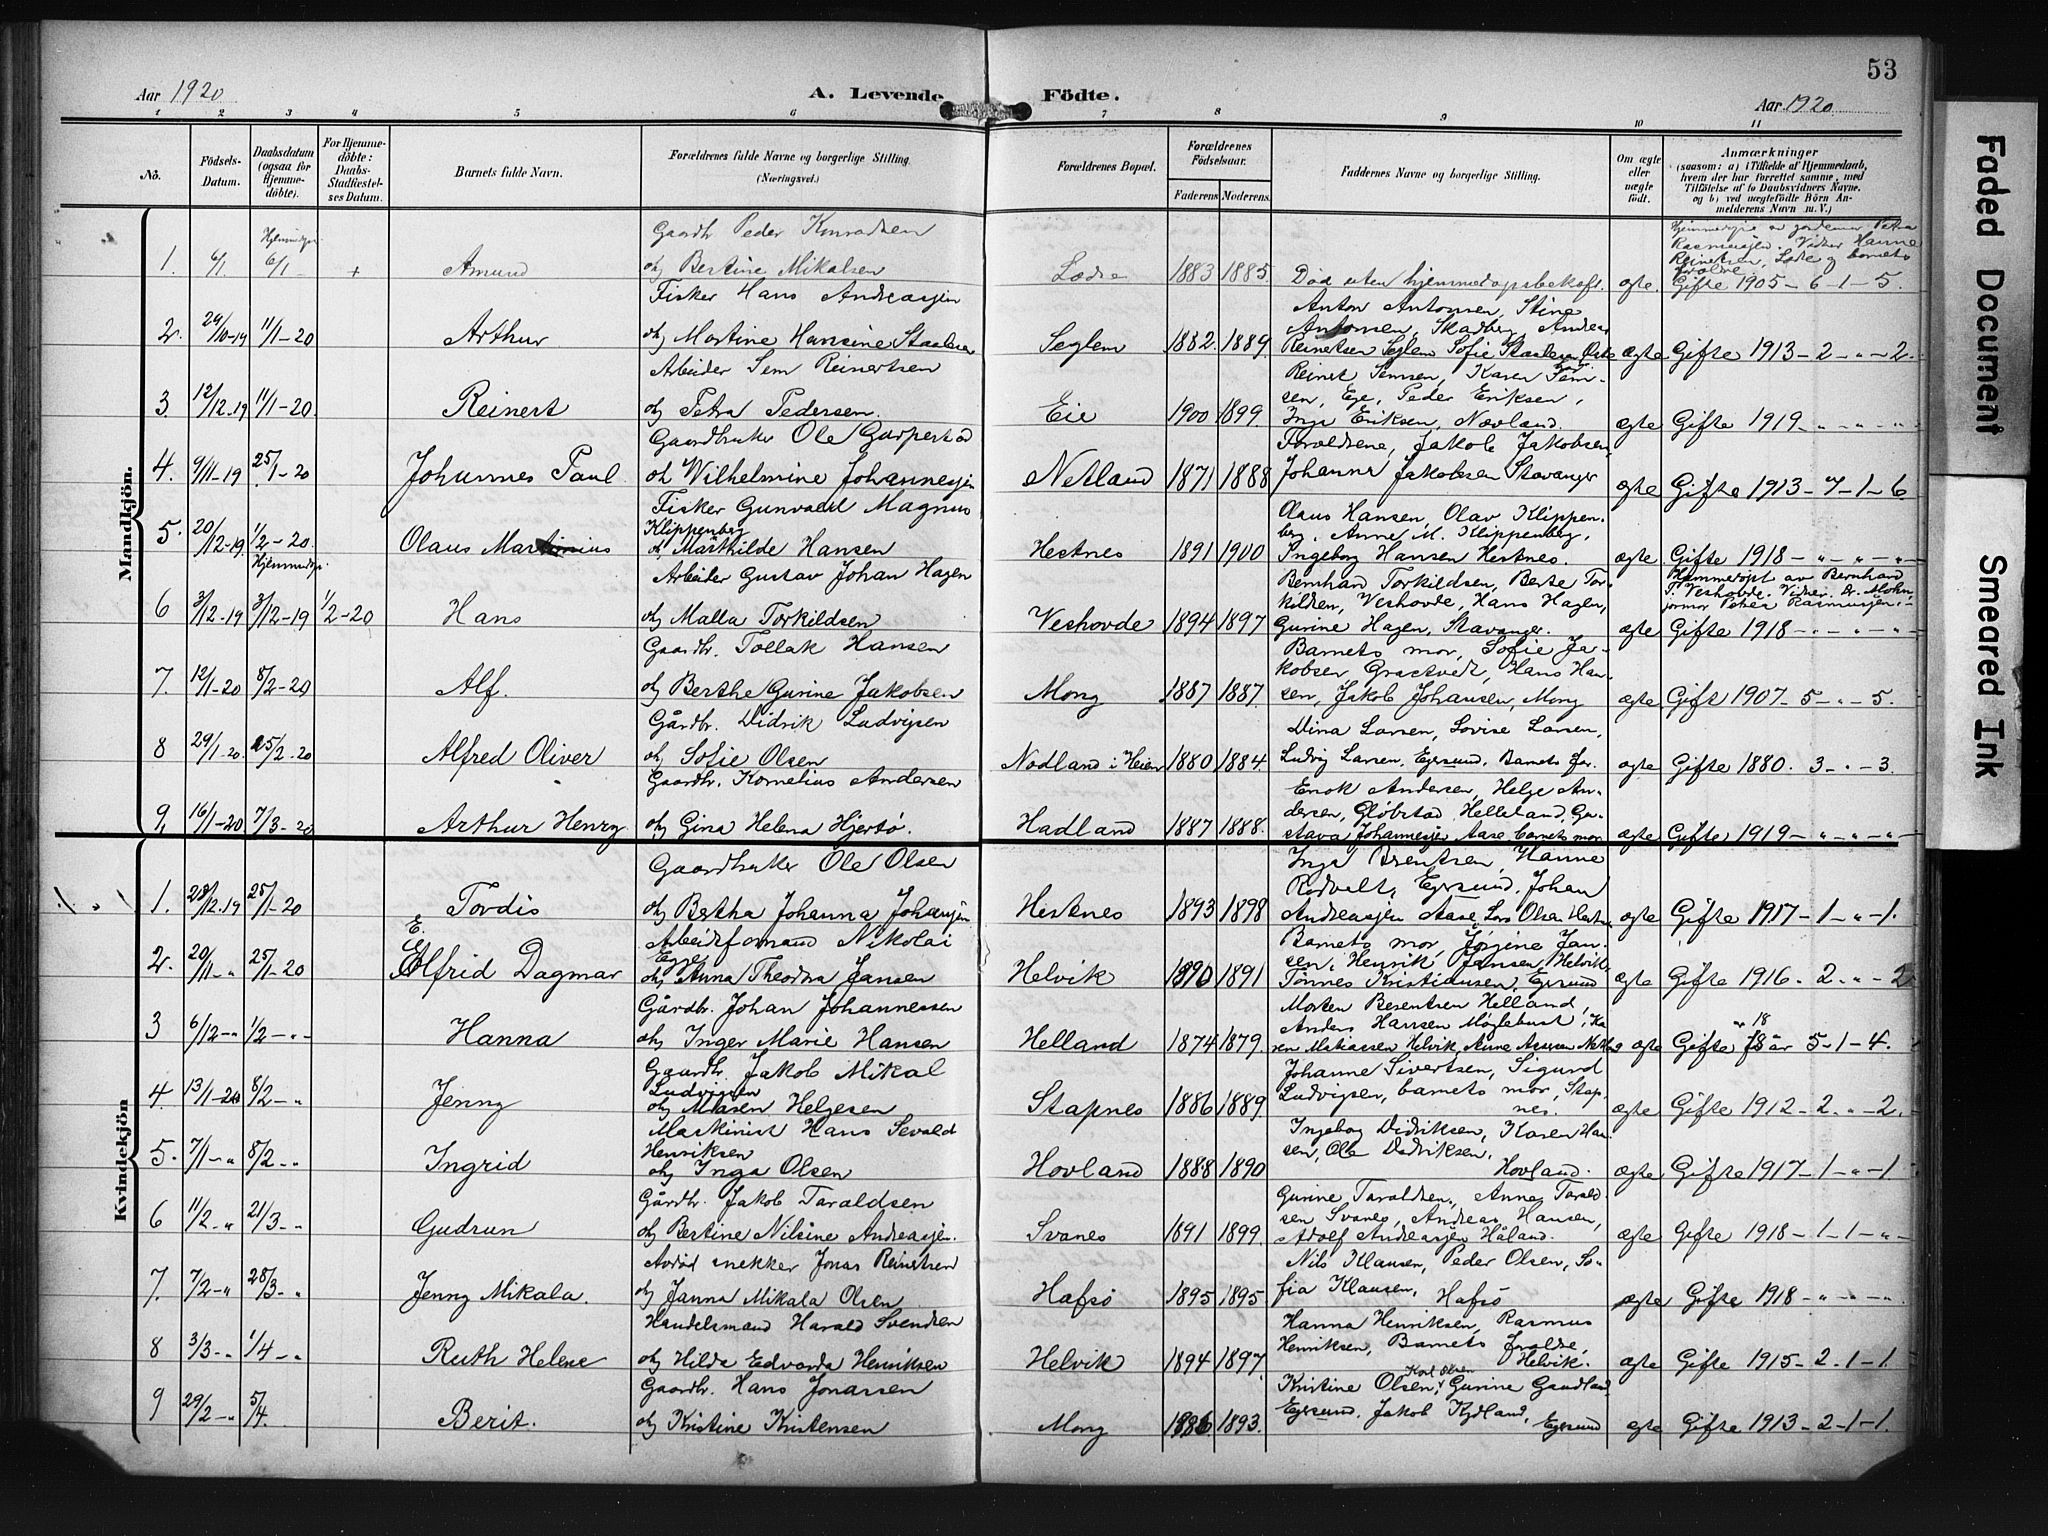 53
Aar 1920
A. Levende Födte.
Aar 1920
1 2 3 4 5 6 7 8 9 10 11
No.
Födsels-Datum.
Daabsdatum (ogsaa for Hjemmedöbte).
For Hjemmedöbte: Daabs-Stadfæstelses Datum.
Barnets fulde Navn.
Forældrenes fulde Navne og borgerlige Stilling. (Næringsvei.)
Forældrenes Bopæl.
Forældrenes Födselsaar.
Faderens Moderens
Faddernes Navne og borgerlige Stilling.
Om ægte eller uægte födt.
Anmærkninger
(saasom: a) i Tilfælde af Hjemmedaab, hvem der har forrettet samme, med Tilföielse af to Daabsvidners Navne, og b) ved uægtefödte Börn Anmelderens Navn m. V.)
Mandkjön.
1. 6/1 6/1 + Amund
Gaardbr Peder Konradsen
og Bertine Mikalsen
1883 1885.
Død uten hjemmedaabsbekr. ægte
Gifte 1905 - 6 - 1 - 5.
2. 29/10-19 11/1-20 Arthur
Fisker Hans Andreassen
og Martine Hansine Staalesen
Seglem 1882. 1889
Anton Antonsen, Stine
Antonsen, Skadberg, Andreas
Reinertsen Seglem Sofie Staalesen
ægte Gifte 1913 - 2 - " - 2.
3. 12/12-19 11/1-20. Reinert
Arbeider Sem Reinertsen
og Petra Pedersen.
Eie 1900 1899.
Reinert Semsen, Karen Sem-
sen, Eje, Peder Eriksen,
Inga Eriksen, Nævland.
ægte Gifte 1919 - " - " - " -
4. 9/11-19 25/1-20 Johannes Paul
Gaardbruker Ole Garpestad
og Wilhelmine Johannessen
Netland 1871 1888
Forældrene, Jakob Jakobsen
Johanna Jakobsen Stavanger
ægte Gifte 1913 - 7 - 1 - 6
5. 20/12-19. 1/2-20. Olaus Martinius
Fisker Gunvald Magnus
Klippenberg
og Mathilde Hansen
Hestnes 1891 1900
Olaus Hansen, Olav Klippen-
berg, Anne M. Klippenberg,
Ingeborg Hansen Hestnes.
ægte. Gifte 1918 - " - " - " -
6 3/12-19 3/12-19 1/2-20 Hans
Arbeider Gustav Johan Hagen
og Malla Torkildsen
Veshovde 1894 1897
Bernhard Torkildsen, Berte Tor-
kildsen, Veshovde, Hans Hagen,
Gurine Hagen, Stavanger.
ægte Gifte 1918 - " - " - " -
7. 12/1-20 8/2-20 Alf.
Gaardbr. Tollak Hansen
og Berthe Gurine Jakobsen
Mong 1887 1887.
Barnets mor, Sofie Ja-
kobsen Grastveit, Hans Han-
sen, Jakob Johansen, Mong
ægte Gifte 1907 - 5 - " - 5.
8 29/1-20. 25/2-20 Alfred Oliver
Gårdbr. Didrik Ludvigsen
og Sofie Olsen
Nodland i Heien 1880 1884.
Dina Larsen, Lovise Larsen,
Ludvig Larsen, Egersund, Barnets far.
ægte Gifte 1880. 3 - " - 3.
9. 16/1-20 7/3-20 Arthur Henry.
Gaardbr. Kornelius Andersen
og Gina Helena Hjertø.
Hadland 1887 1888.
Enok Andersen, Helge An-
dersen, Gløbstad, Helleland, Gu-
stava Johannessen Aase, barnets mor
ægte Gifte 1919 - " - " - " -
Kvindekjön
1. 28/12-19 25/1-20 Tordis
Gaardbruker Ole Olsen
og Bertha Johanna Johansen
Hestnes 1893 1898
Inga Brentsen, Hanne
Rødvelt, Egersund, Johan
Andreassen Aase, Lars Olsen Hestnes
ægte Gifte 1917 - 1 - " - 1.
2. 20/11-" 25/1-20 E. Elfrid Dagmar
Arbeidsformand Nikolai
Egge
og Anna Theodora Jansen
Helvik 1890 1891
Barnets mor, Jørgine Jan-
sen, Henrik Jansen, Helvik,
Tønnes Kristiansen, Egersund
ægte Gifte 1916 - 2 - " - 2
3 6/12-" 1/2-" Hanna
Gårdbr. Johan Johannessen
og Inger Marie Hansen
Helland 1874 1879.
Morten Berentsen Helland,
Anders Hansen Møglebust, Ka-
ren Matiassen Helvik,
ægte Gifte 18 år 5 - 1 - 4.
4. 13/1-20 8/2-" Jenny
Gaardbr Jakob Mikal
Ludvigsen
og Maren Helgesen
Stapnes 1886 1889.
Johanne Sivertsen, Sigurd
Ludvigsen, barnets mor, Stap-
nes.
ægte Gifte 1912 - 2. " - 2.
5. 7/1-" 8/2-" Ingrid
Maskinist Hans Sevald
Henriksen
og Inga Olsen
Hovland 1888 1890
Ingeborg Didriksen, Karen Han-
sen, Ole Didriksen,
Hovland.
ægte Gifte 1917 - 1 - " - 1
6 11/2-" 21/3-" Gudrun
Gårdbr. Jakob Taraldsen
og Bertine Nilsine Andreassen.
Svanes 1891 1899.
Gurine Taraldsen, Anna Tarald-
sen Svanes, Andreas Hansen,
Adolf Andreassen Håland.
ægte Gifte 1918 - 1 - 1 - " -
7. 7/2-" 28/3-" Jenny Mikala.
snekker Jonas Reinertsen
og Janna Mikala Olsen
Hafsø 1895 1895
Nils Klausen, Peder Olsen, So-
fia Klausen, Hafsø
ægte Gifte 1918 - " - " - "
8 3/3-" 1/4-" Ruth Helene
Handelsmand Harald Svendsen
og Hilda Edvarda Henriksen
Helvik 1894 1897
Hanna Henriksen, Rasmus
Henriksen, Barnets forældre,
Helvik.
ægte Gifte 1915 - 2 - 1 - 1
9 29/2-" 5/4. Berit.
Gaardbr. Hans Jonassen
og Kristine Kristensen
Mong 1886 1893.
Karl Olsen
Kristine Olsen, Gurine Gaudland
Egersund, Jakob Kydland,
Egersund
ægte Gifte 1913 - 2 - 1 - 1.
Faded Document
Smeared Ink